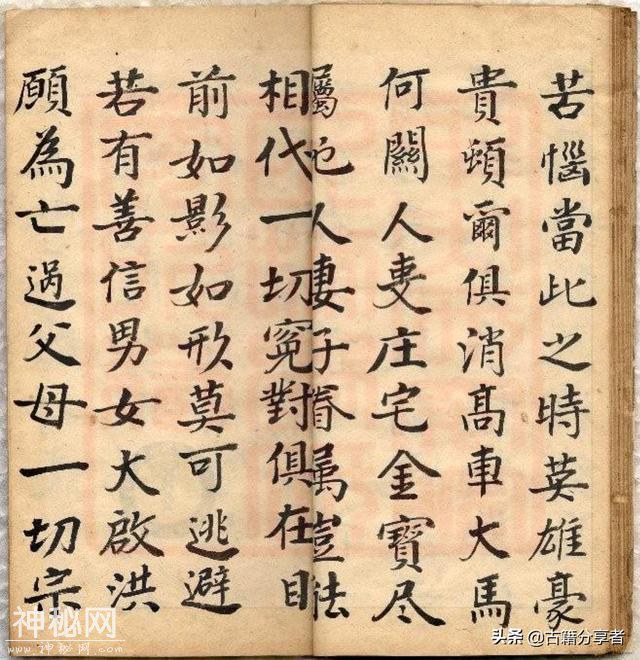 苦惱當此之時英雄豪
貴頓爾俱消高車大馬
何關人叓庄宅金寶尽
屬他人妻子眷属豈
相代一切冤對俱在目
前如影如形莫可逃避
若有善信男女大啟洪
願為亡過父母一切宗
神秘网
头条 @古籍分享者